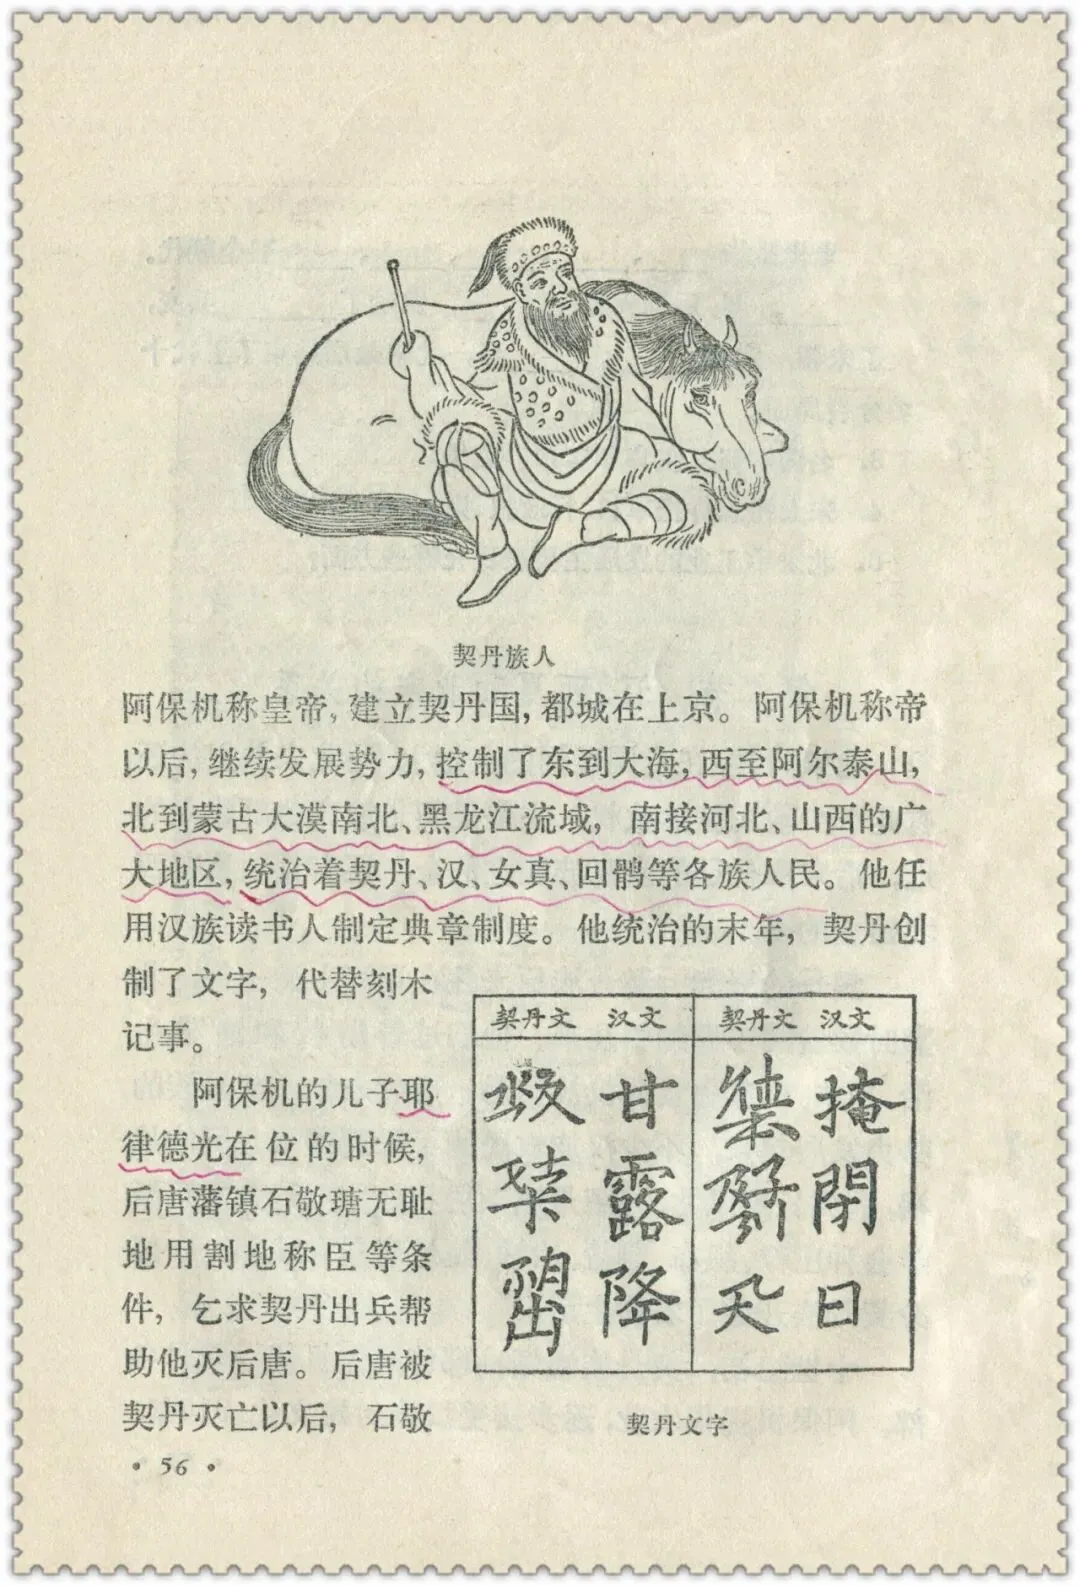 契丹族人
阿保机称皇帝，建立契丹国，都城在上京。阿保机称帝
以后，继续发展势力，控制了东到大海，西至阿尔泰山，
北到蒙古大漠南北、黑龙江流域，南接河北、山西的广
大地区，统治着契丹、汉、女真、回鹘等各族人民。他任
用汉族读书人制定典章制度。他统治的末年，契丹创
制了文字，代替刻木
记事。
阿保机的儿子耶
律德光在位的时候，
后唐藩镇石敬瑭无耻
地用割地称臣等条
件，乞求契丹出兵帮
助他灭后唐。后唐被
契丹灭亡以后，石敬
契丹文 汉文 契丹文 汉文
甘 掩
露 閉
降 日
契丹文字
· 56 ·